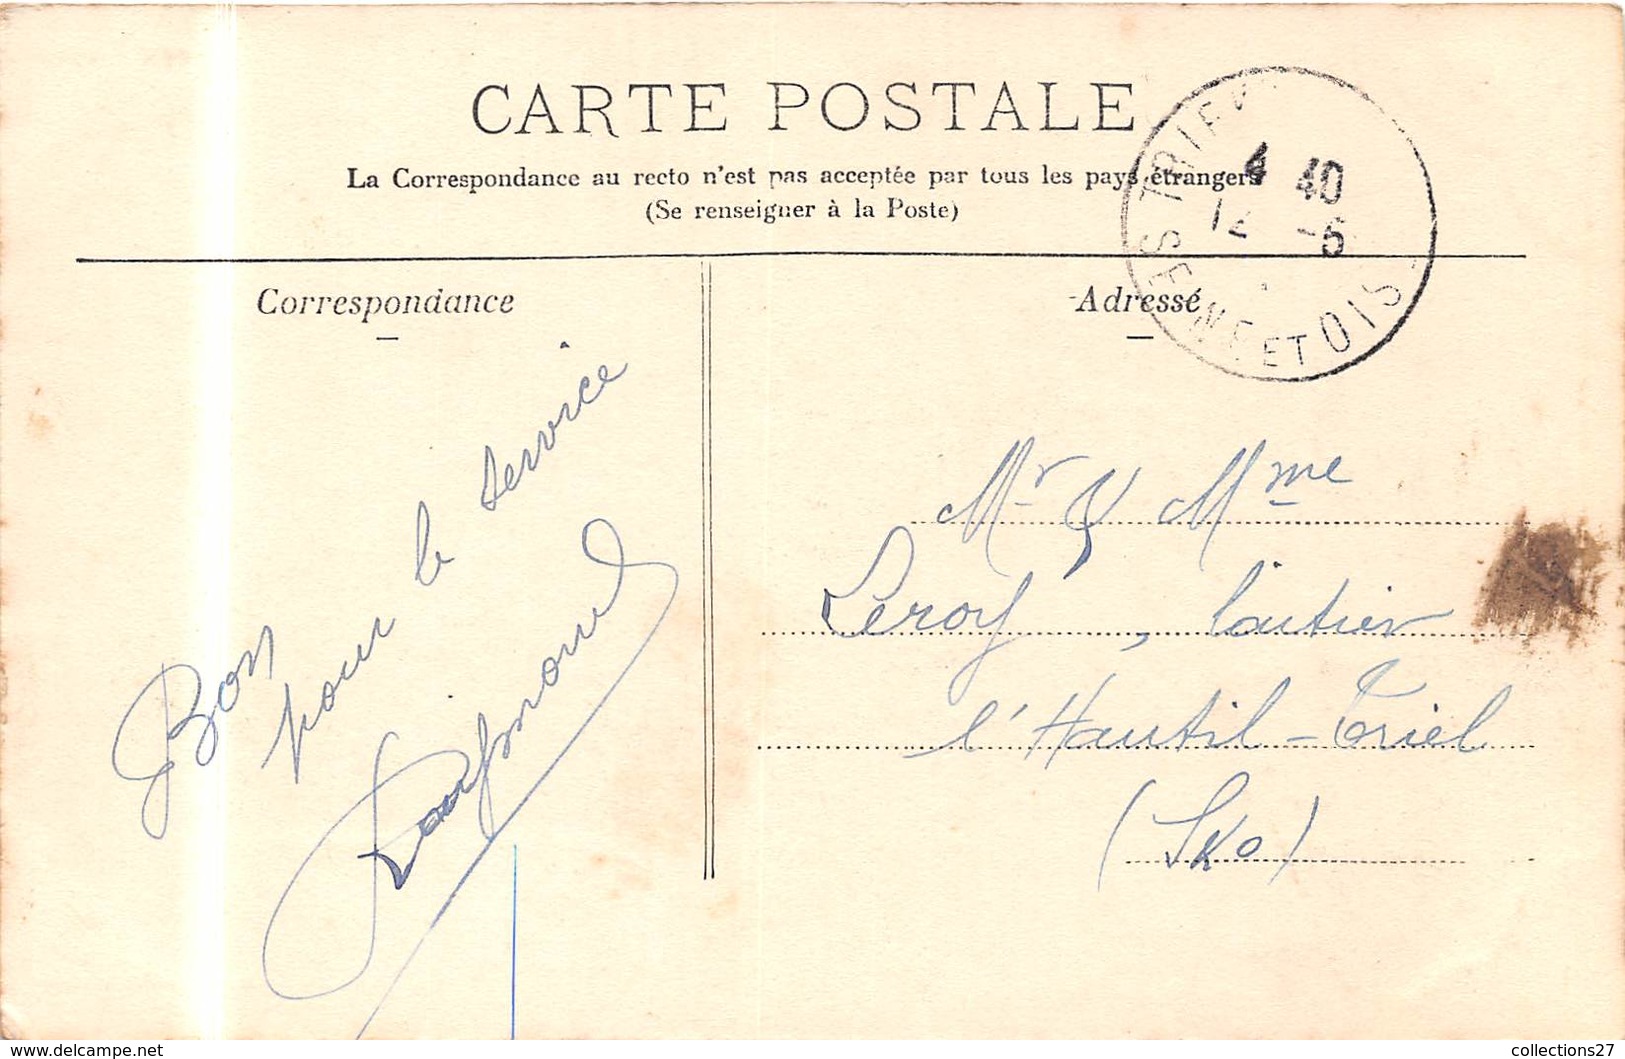 CARTE POSTALE
La Correspondance au recto n'est pas acceptée par tous les pays étrangers
(Se renseigner à la Poste)
4 40
12 -6
SEINE ET OIS
Correspondance
Adresse
Bon
pour le service
Raymond
Mr & Mme
Leroy, laitier
l'Hautil-Triel
(S&O)
www.delcampe.net
collections27